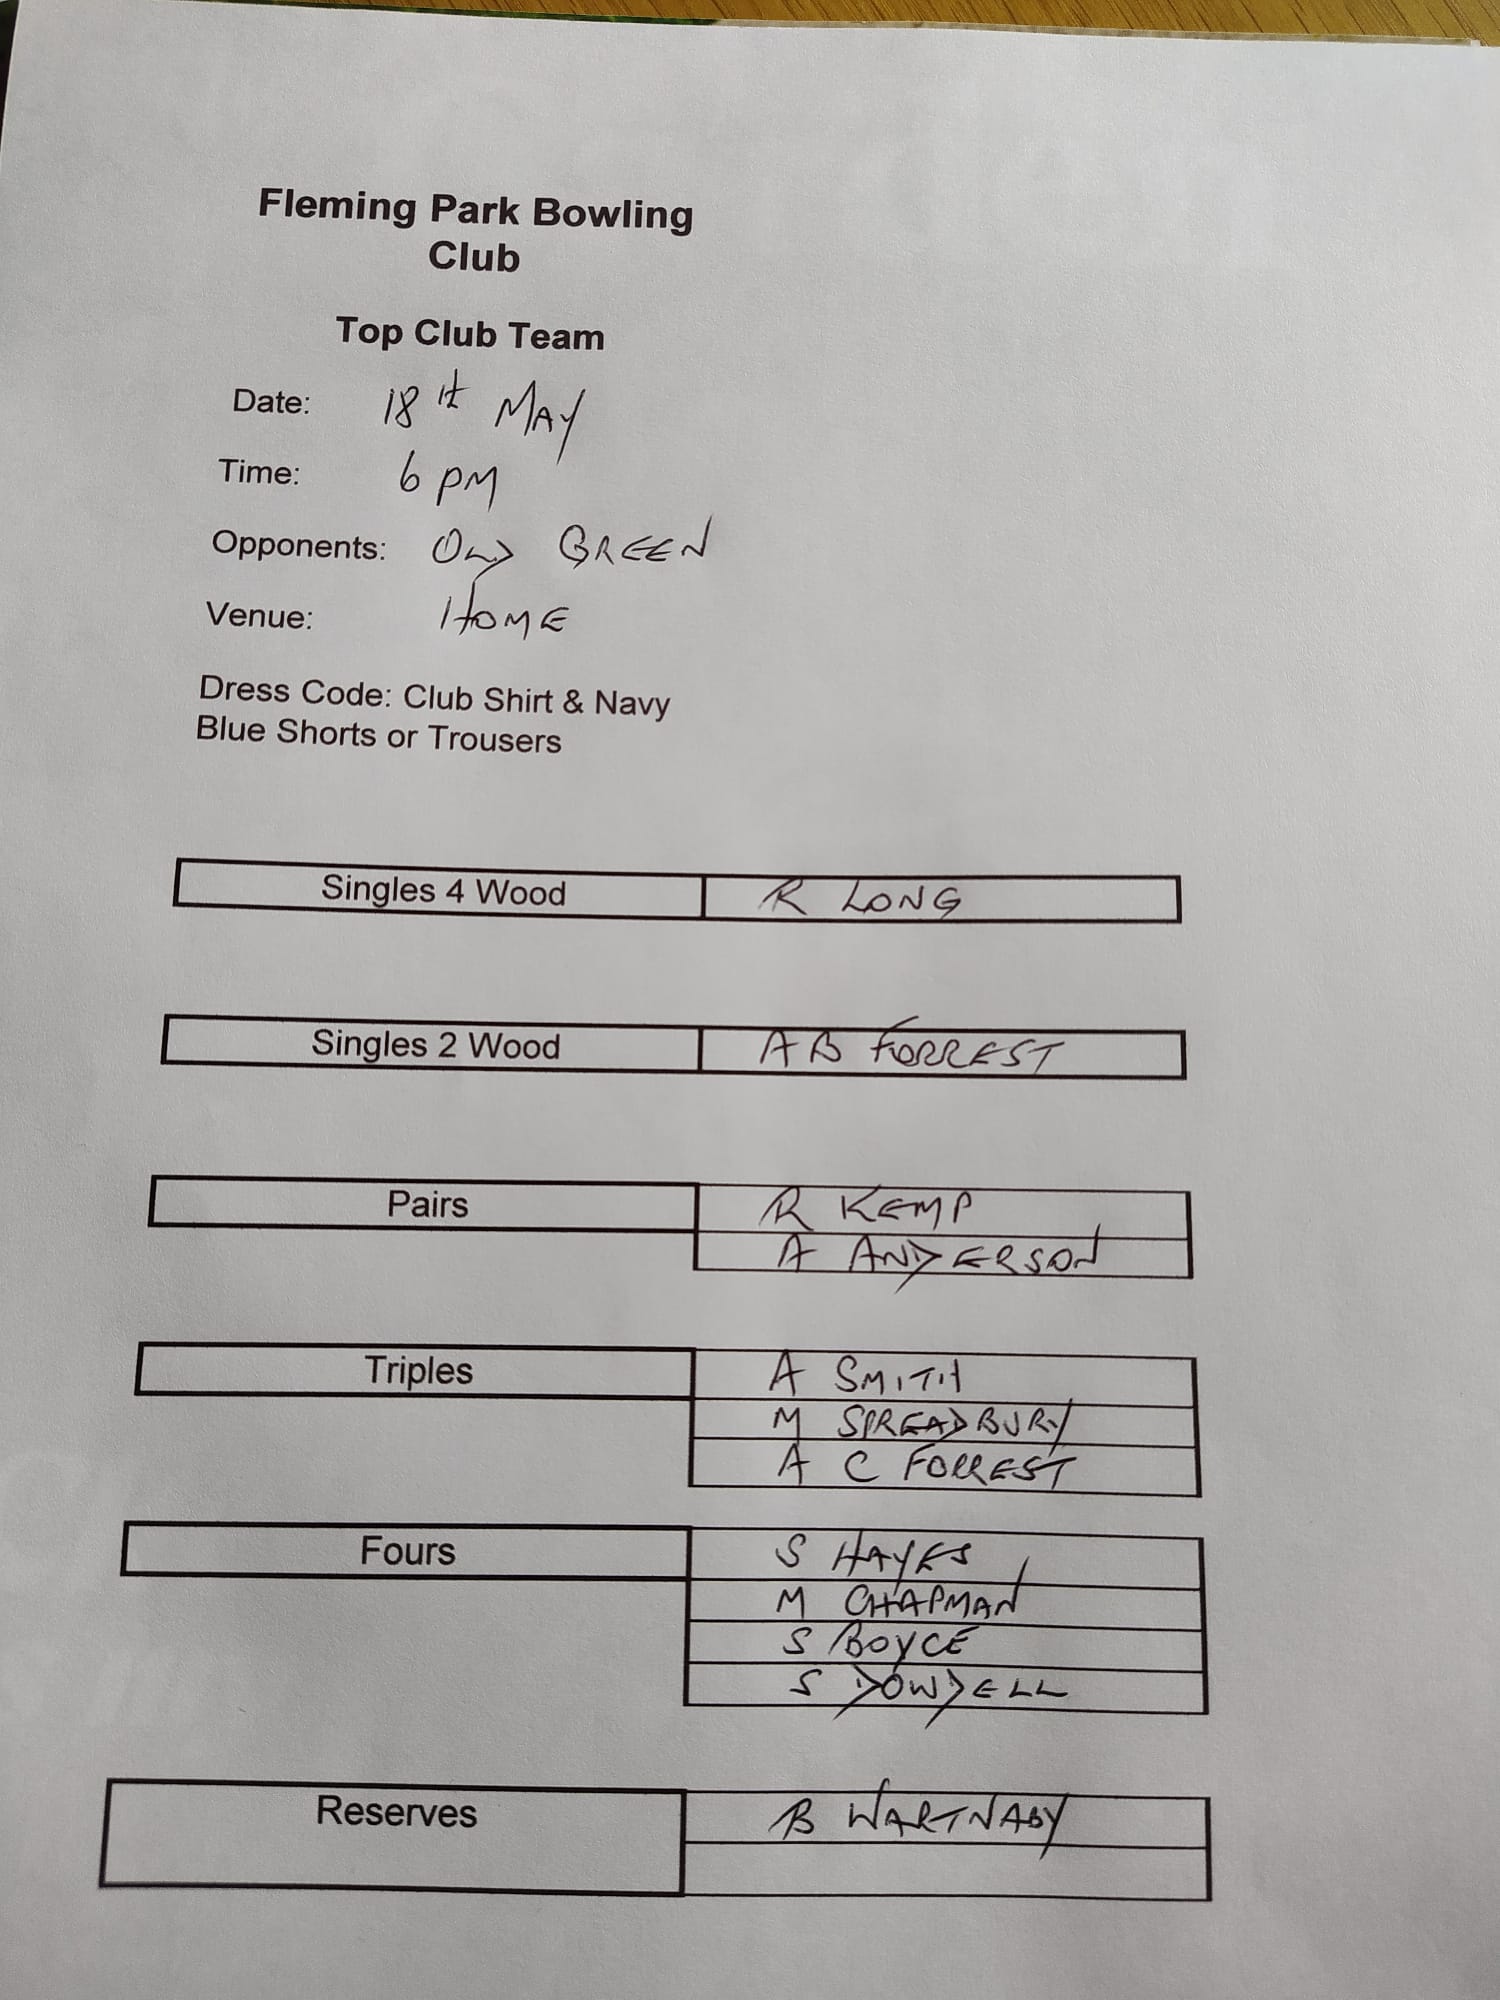 Fleming Park Bowling
Club
Top Club Team
Date: 18th MAY
Time: 6 PM
Opponents: OLD GREEN
Venue: HOME
Dress Code: Club Shirt & Navy
Blue Shorts or Trousers
Singles 4 Wood R LONG
Singles 2 Wood A B FORREST
Pairs R KEMP
A ANDERSON
Triples A SMITH
M SPREADBURY
A C FORREST
Fours S HAYES
M CHAPMAN
S BOYCE
S DOWDELL
Reserves B WARTNABY